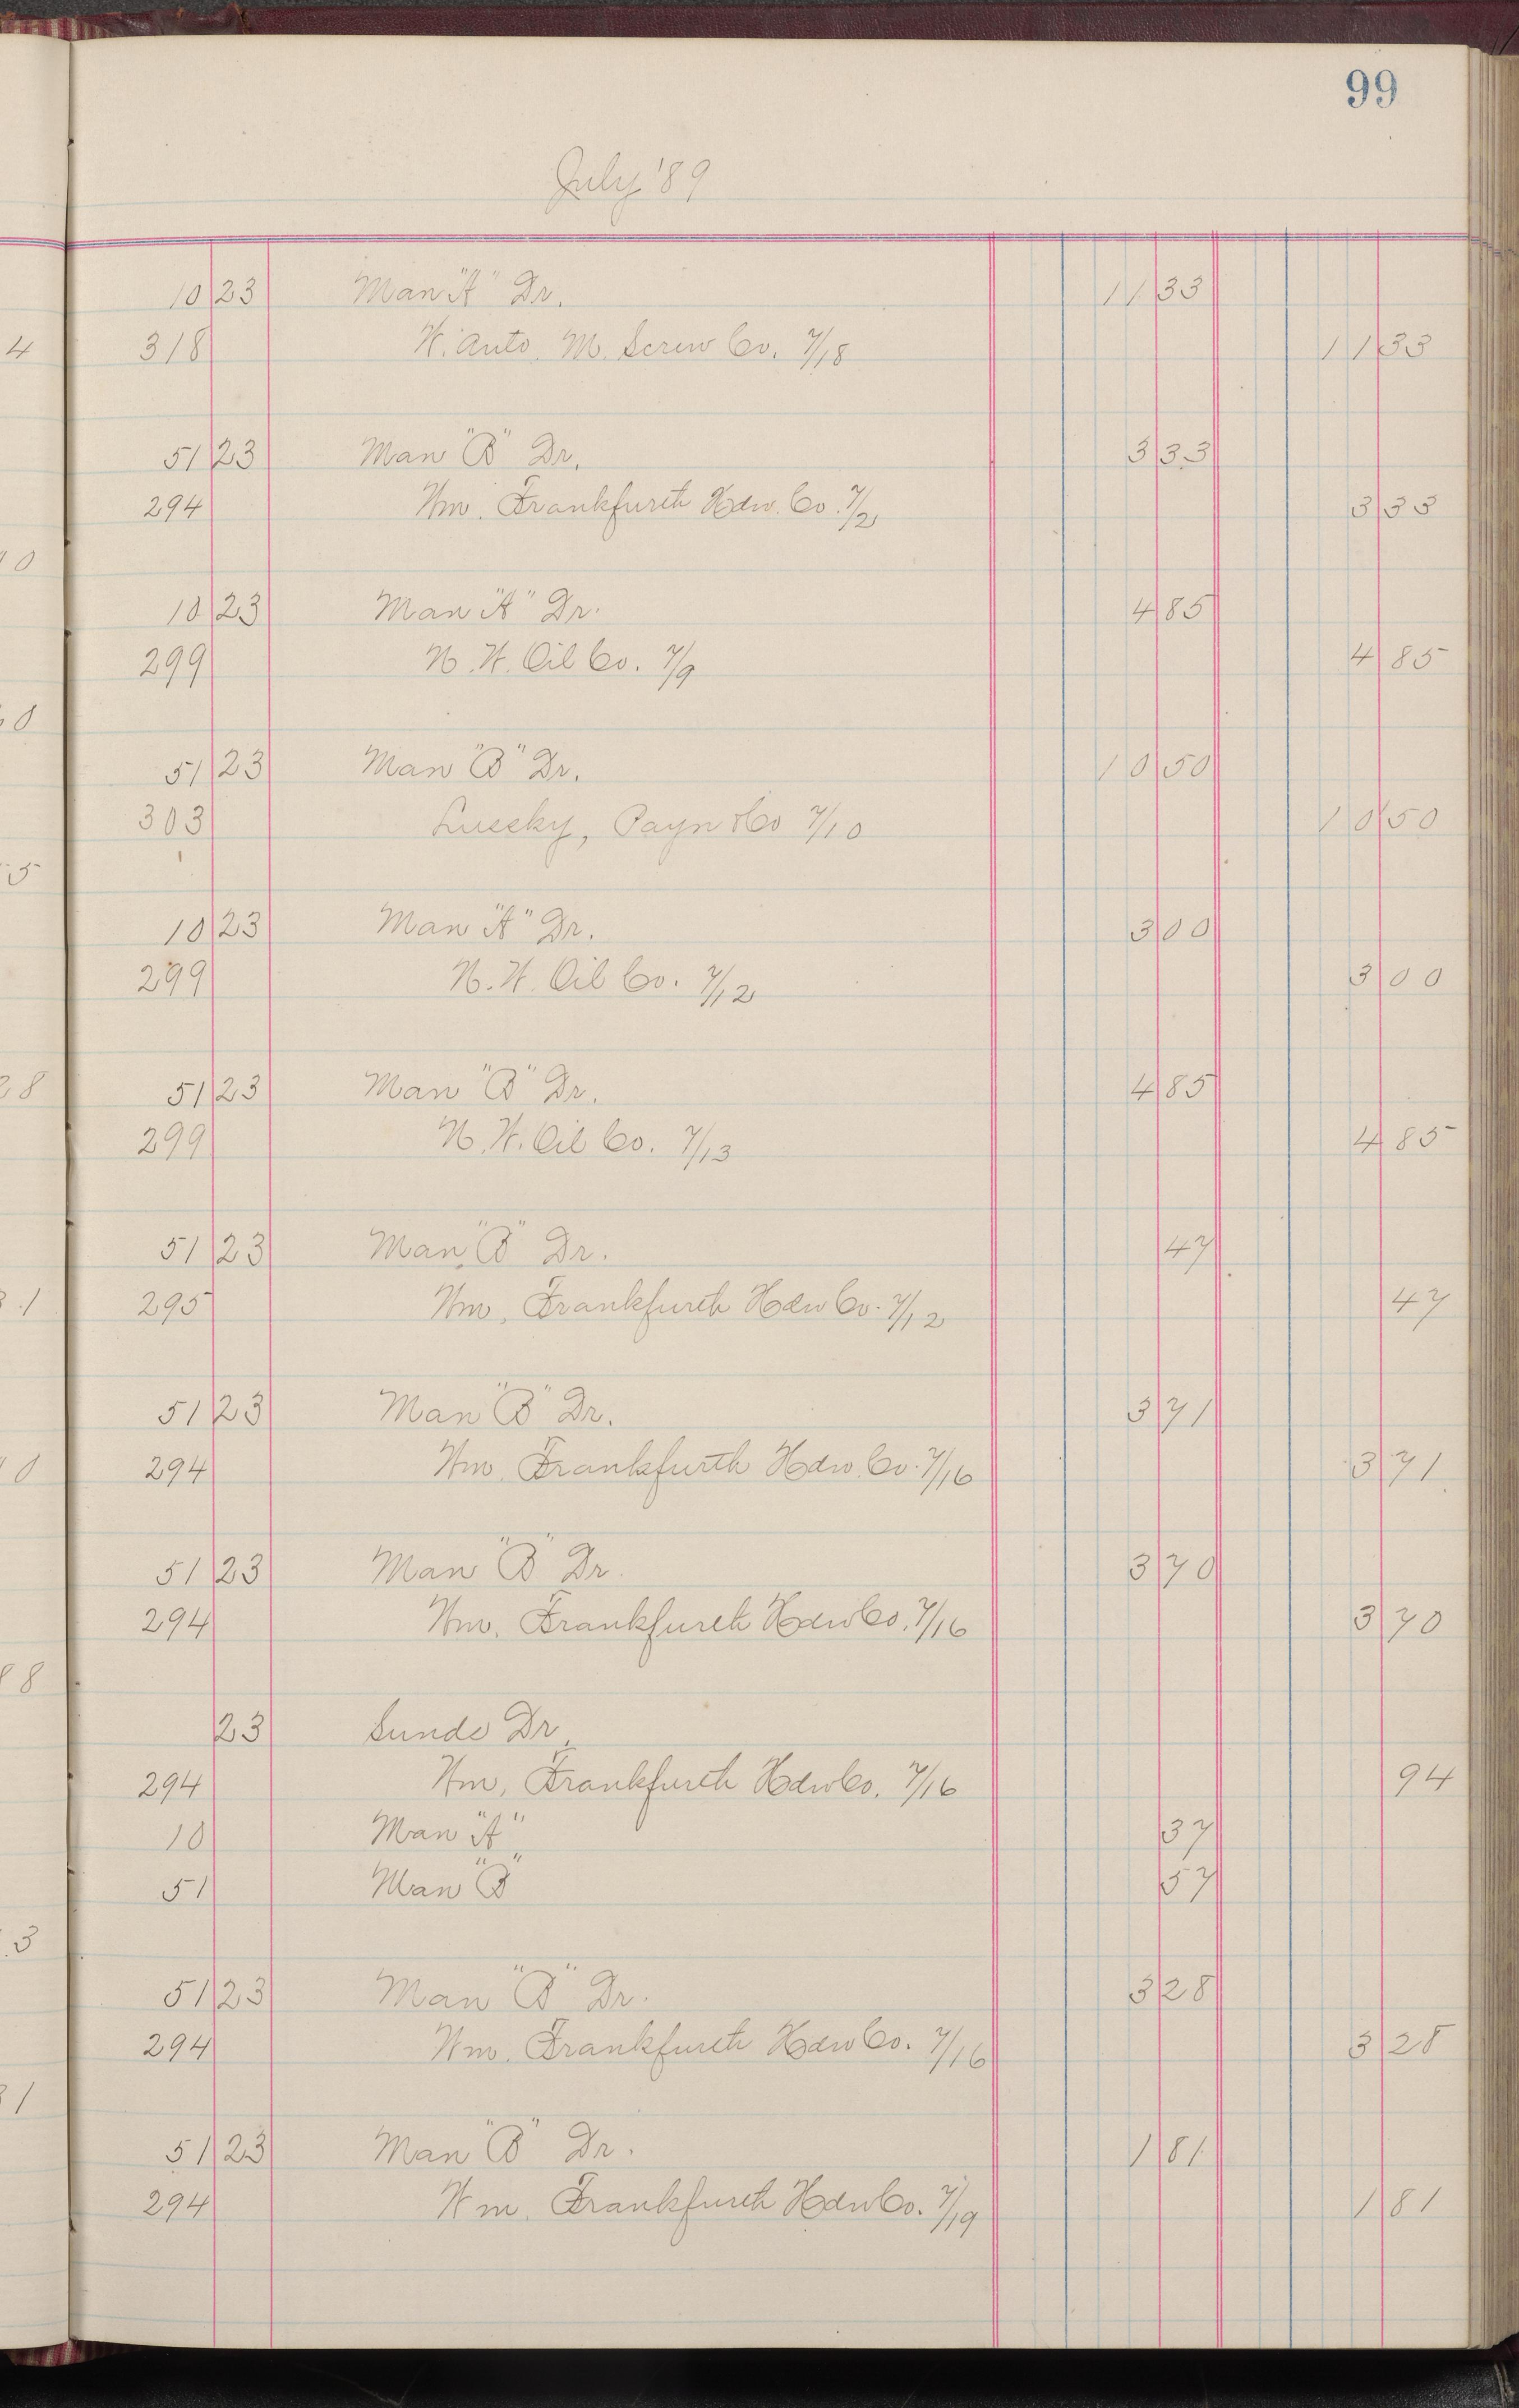 99
July '89
10 23 Man "A" Dr. 11 33
318 W. Auto. M. Screw Co. 7/18 11 33
51 23 Man "B" Dr. 3 33
294 Wm. Frankfurth Hdw. Co. 7/2 3 33
10 23 Man "A" Dr. 4 85
299 N. W. Oil Co. 7/9 4 85
51 23 Man "B" Dr. 10 50
303 Payn & Co 7/10 10 50
10 23 Man "A" Dr. 3 00
299 N. W. Oil Co. 7/12 3 00
51 23 Man "B" Dr. 4 85
299 N. W. Oil Co. 7/13 4 85
51 23 Man "B" Dr. 47
295 Wm. Frankfurth Hdw Co. 7/12 47
51 23 Man "B" Dr. 3 71
294 Wm. Frankfurth Hdw. Co. 7/16 3 71
51 23 Man "B" Dr. 3 70
294 Wm. Frankfurth Hdw Co. 7/16 3 70
23 Sunds Dr.
294 Wm. Frankfurth Hdw Co. 7/16 94
10 Man "A" 37
51 Man "B" 57
51 23 Man "B" Dr. 3 28
294 Wm. Frankfurth Hdw Co. 7/16 3 28
51 23 Man "B" Dr. 1 81
294 Wm. Frankfurth Hdw Co. 7/19 1 81